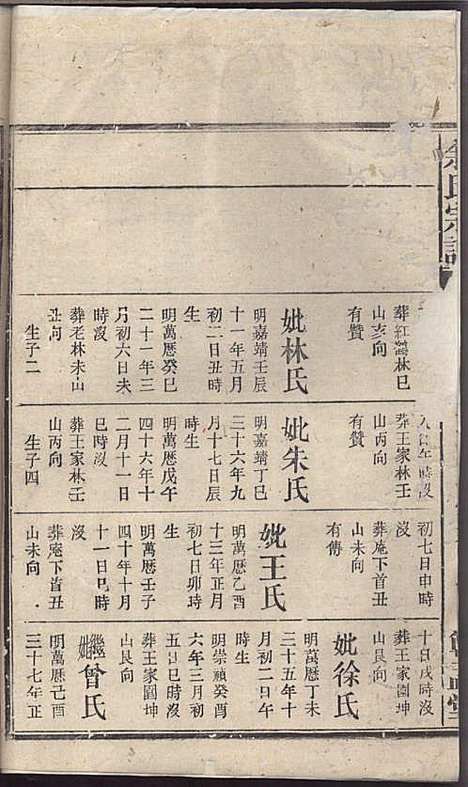 余氏宗譜
葬紅灣林巳
山亥向
有贊
妣林氏
明嘉靖壬辰
十一年五月
初二日丑時
生
明萬曆癸巳
二十一年三
月初六日未
時沒
葬老林未山
丑向
生子二
葬王家林壬
山丙向
有贊
妣朱氏
明嘉靖丁巳
三十六年九
月十七日辰
時生
明萬曆戊午
四十六年十
二月十一日
巳時沒
葬王家林壬
山丙向
生子四
初七日申時
沒
葬庵下首丑
山未向
有傳
妣王氏
明萬曆乙酉
十三年正月
初七日卯時
生
明萬曆壬子
四十年十月
十一日巳時
沒
葬庵下首丑
山未向
十日戌時沒
葬王家園坤
山艮向
妣徐氏
明萬曆丁未
三十五年十
月初二日午
時生
明崇禎癸酉
六年三月初
五日巳時沒
葬王家園坤
山艮向
繼妣曾氏
明萬曆己酉
三十七年正